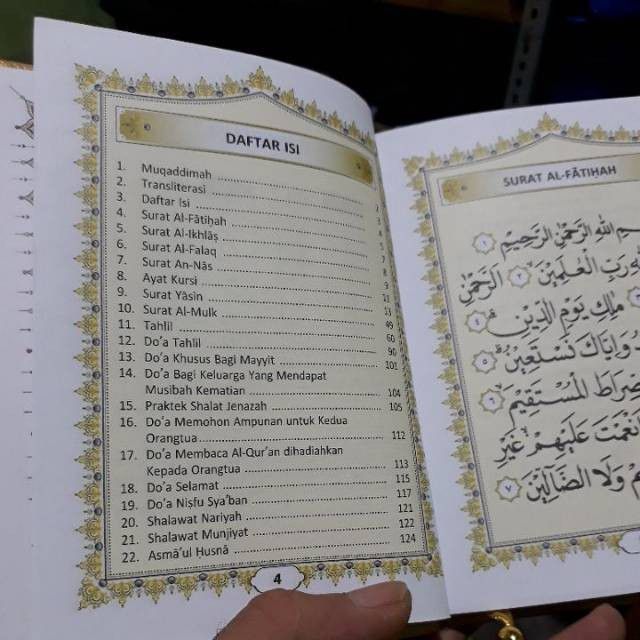 DAFTAR ISI
1. Muqaddimah
2. Transliterasi
3. Daftar Isi
4. Surat Al-Fātiḥah
5. Surat Al-Ikhlāṣ 7
6. Surat Al-Falaq 8
7. Surat An-Nās 9
8. Ayat Kursi 11
9. Surat Yàsin 13
10. Surat Al-Mulk 49
11. Tahlil 60
12. Do'a Tahlil 90
13. Do'a Khusus Bagi Mayyit 101
14. Do'a Bagi Keluarga Yang Mendapat
Musibah Kematian 104
15. Praktek Shalat Jenazah 105
16. Do'a Memohon Ampunan untuk Kedua
Orangtua 112
17. Do'a Membaca Al-Qur'an dihadiahkan
Kepada Orangtua 113
18. Do'a Selamat 115
19. Do'a Niṣfu Sya'ban 117
20. Shalawat Nariyah 121
21. Shalawat Munjiyat 122
22. Asmā'ul Husnā 124
4
SURAT AL-FĀTIḤAH
اللهِ الرَّحْمٰنِ الرَّحِيْمِ ١
رَبِّ الْعٰلَمِيْنَ ٢ الرَّحْمٰنِ
مٰلِكِ يَوْمِ الدِّيْنِ ٤
وَاِيَّاكَ نَسْتَعِيْنُ ٥
الْمُسْتَقِيْمَ ٦
عَلَيْهِمْ غَيْرِ
وَلَا الضَّآلِّيْنَ ٧